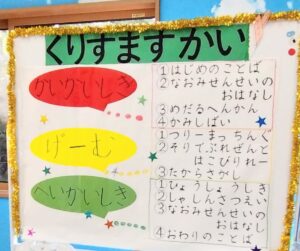 くりすますかい
かいかいしき
①はじめのことば
②なおみせんせいの
おはなし
③めだるへんかん
④かみしばい
げーむ
①つりーまっちんぐ
②そりでぷれぜんと
はこびりれー
③たからさがし
へいかいしき
①ひょうしょうしき
②しゃしんさつえい
③なおみせんせいの
おはなし
④おわりのことば